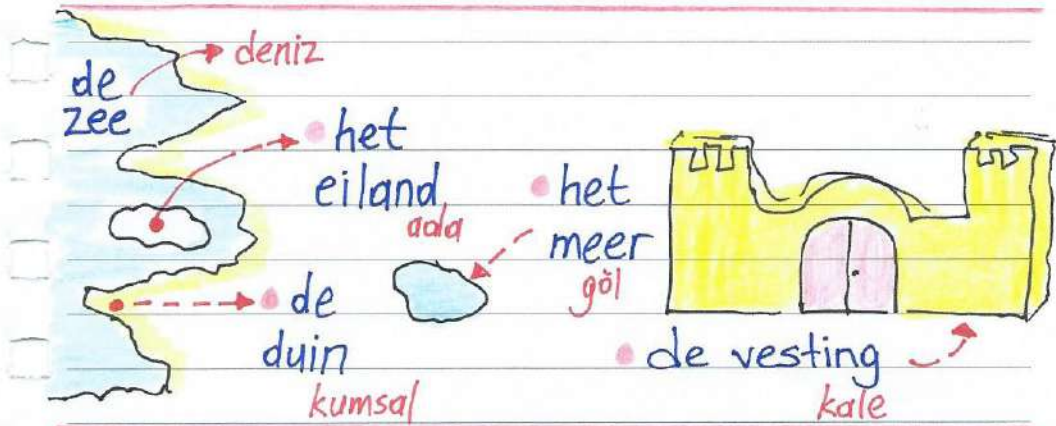 de
zee
deniz
het
eiland
ada
het
meer
göl
de
duin
kumsal
de vesting
kale